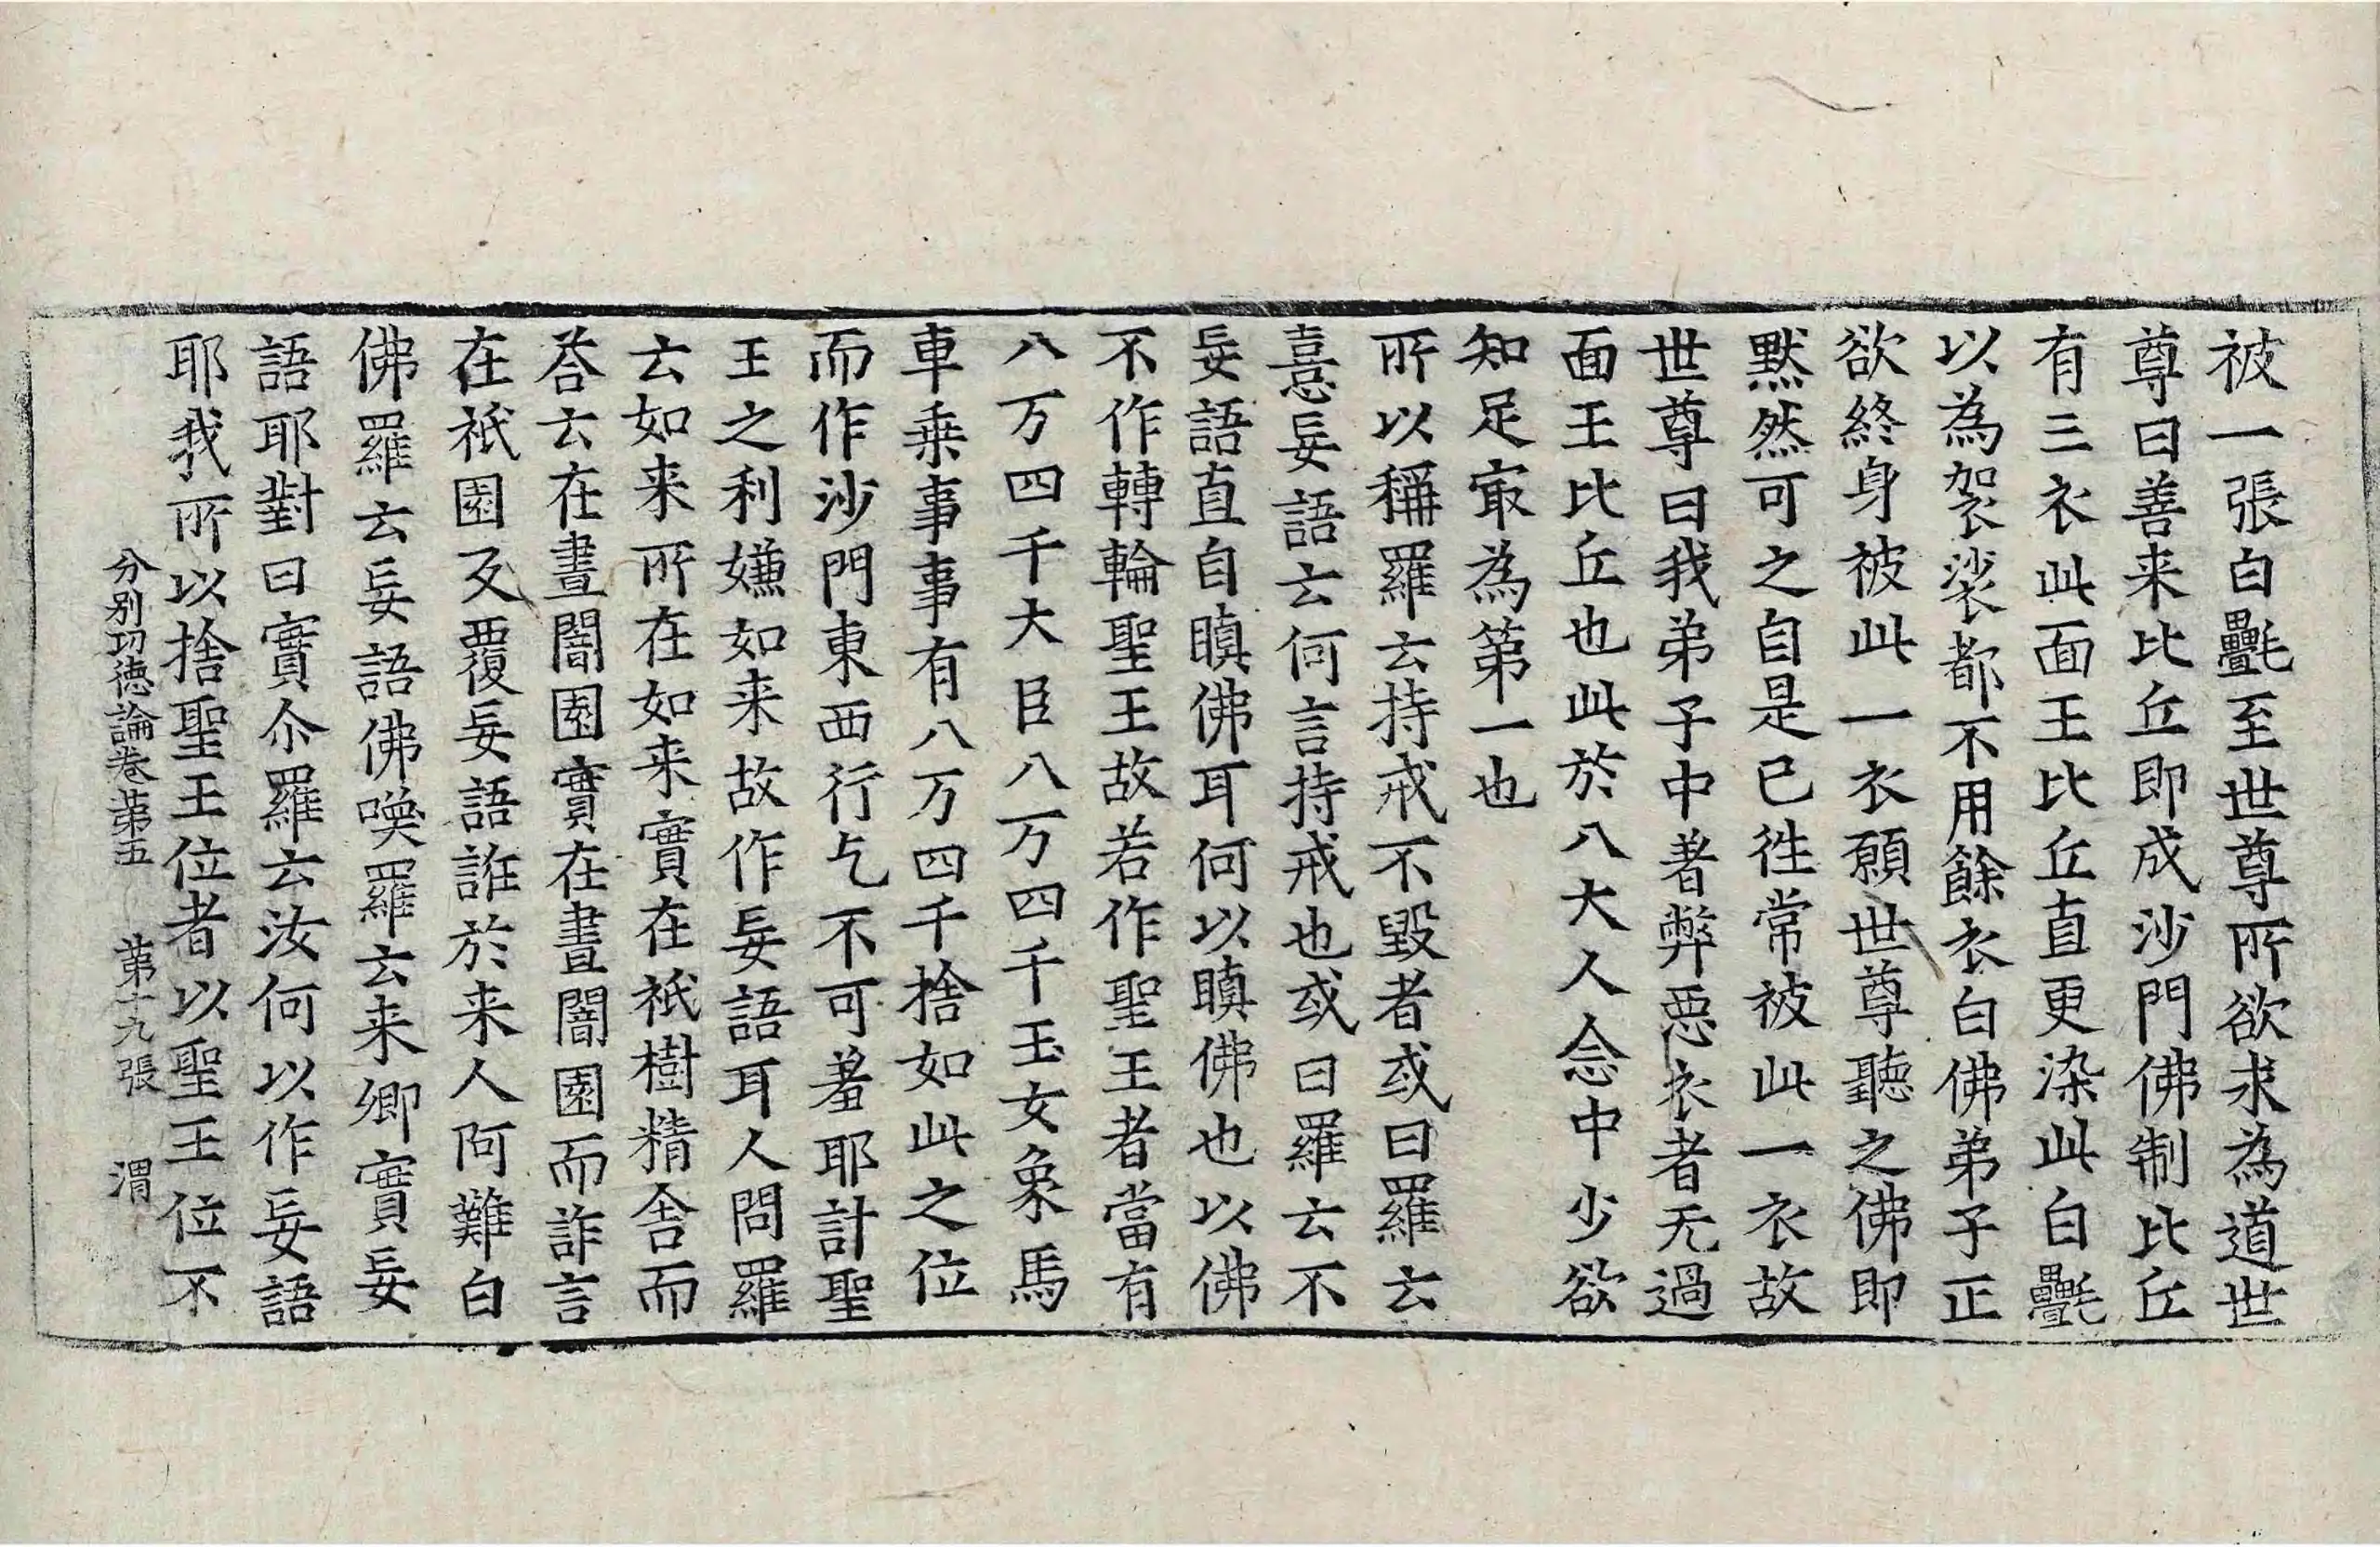 被一張白㲲至世尊所欲求為道世
尊曰善来比丘即成沙門佛制比丘
有三衣此面王比丘直更染此白㲲
以為袈裟都不用餘衣白佛弟子正
欲終身被此一衣願世尊聽之佛即
默然可之自是已徃常被此一衣故
世尊曰我弟子中著弊惡衣者无過
面王比丘也此於八大人念中少欲
知足㝡為第一也
所以稱羅云持戒不毀者或曰羅云
憙妄語云何言持戒也或曰羅云不
妄語直自瞋佛耳何以瞋佛也以佛
不作轉輪聖王故若作聖王者當有
八万四千大臣八万四千玉女象馬
車乗事事有八万四千捨如此之位
而作沙門東西行乞不可羞耶計聖
王之利嫌如来故作妄語耳人問羅
云如来所在如来實在祇樹精舍而
荅云在晝闇園實在晝闇園而詐言
在祇園反覆妄語誑於来人阿難白
佛羅云妄語佛喚羅云来卿實妄
語耶對曰實尒羅云汝何以作妄語
耶我所以捨聖王位者以聖王位不
分別功德論卷苐五　苐十九張　渭